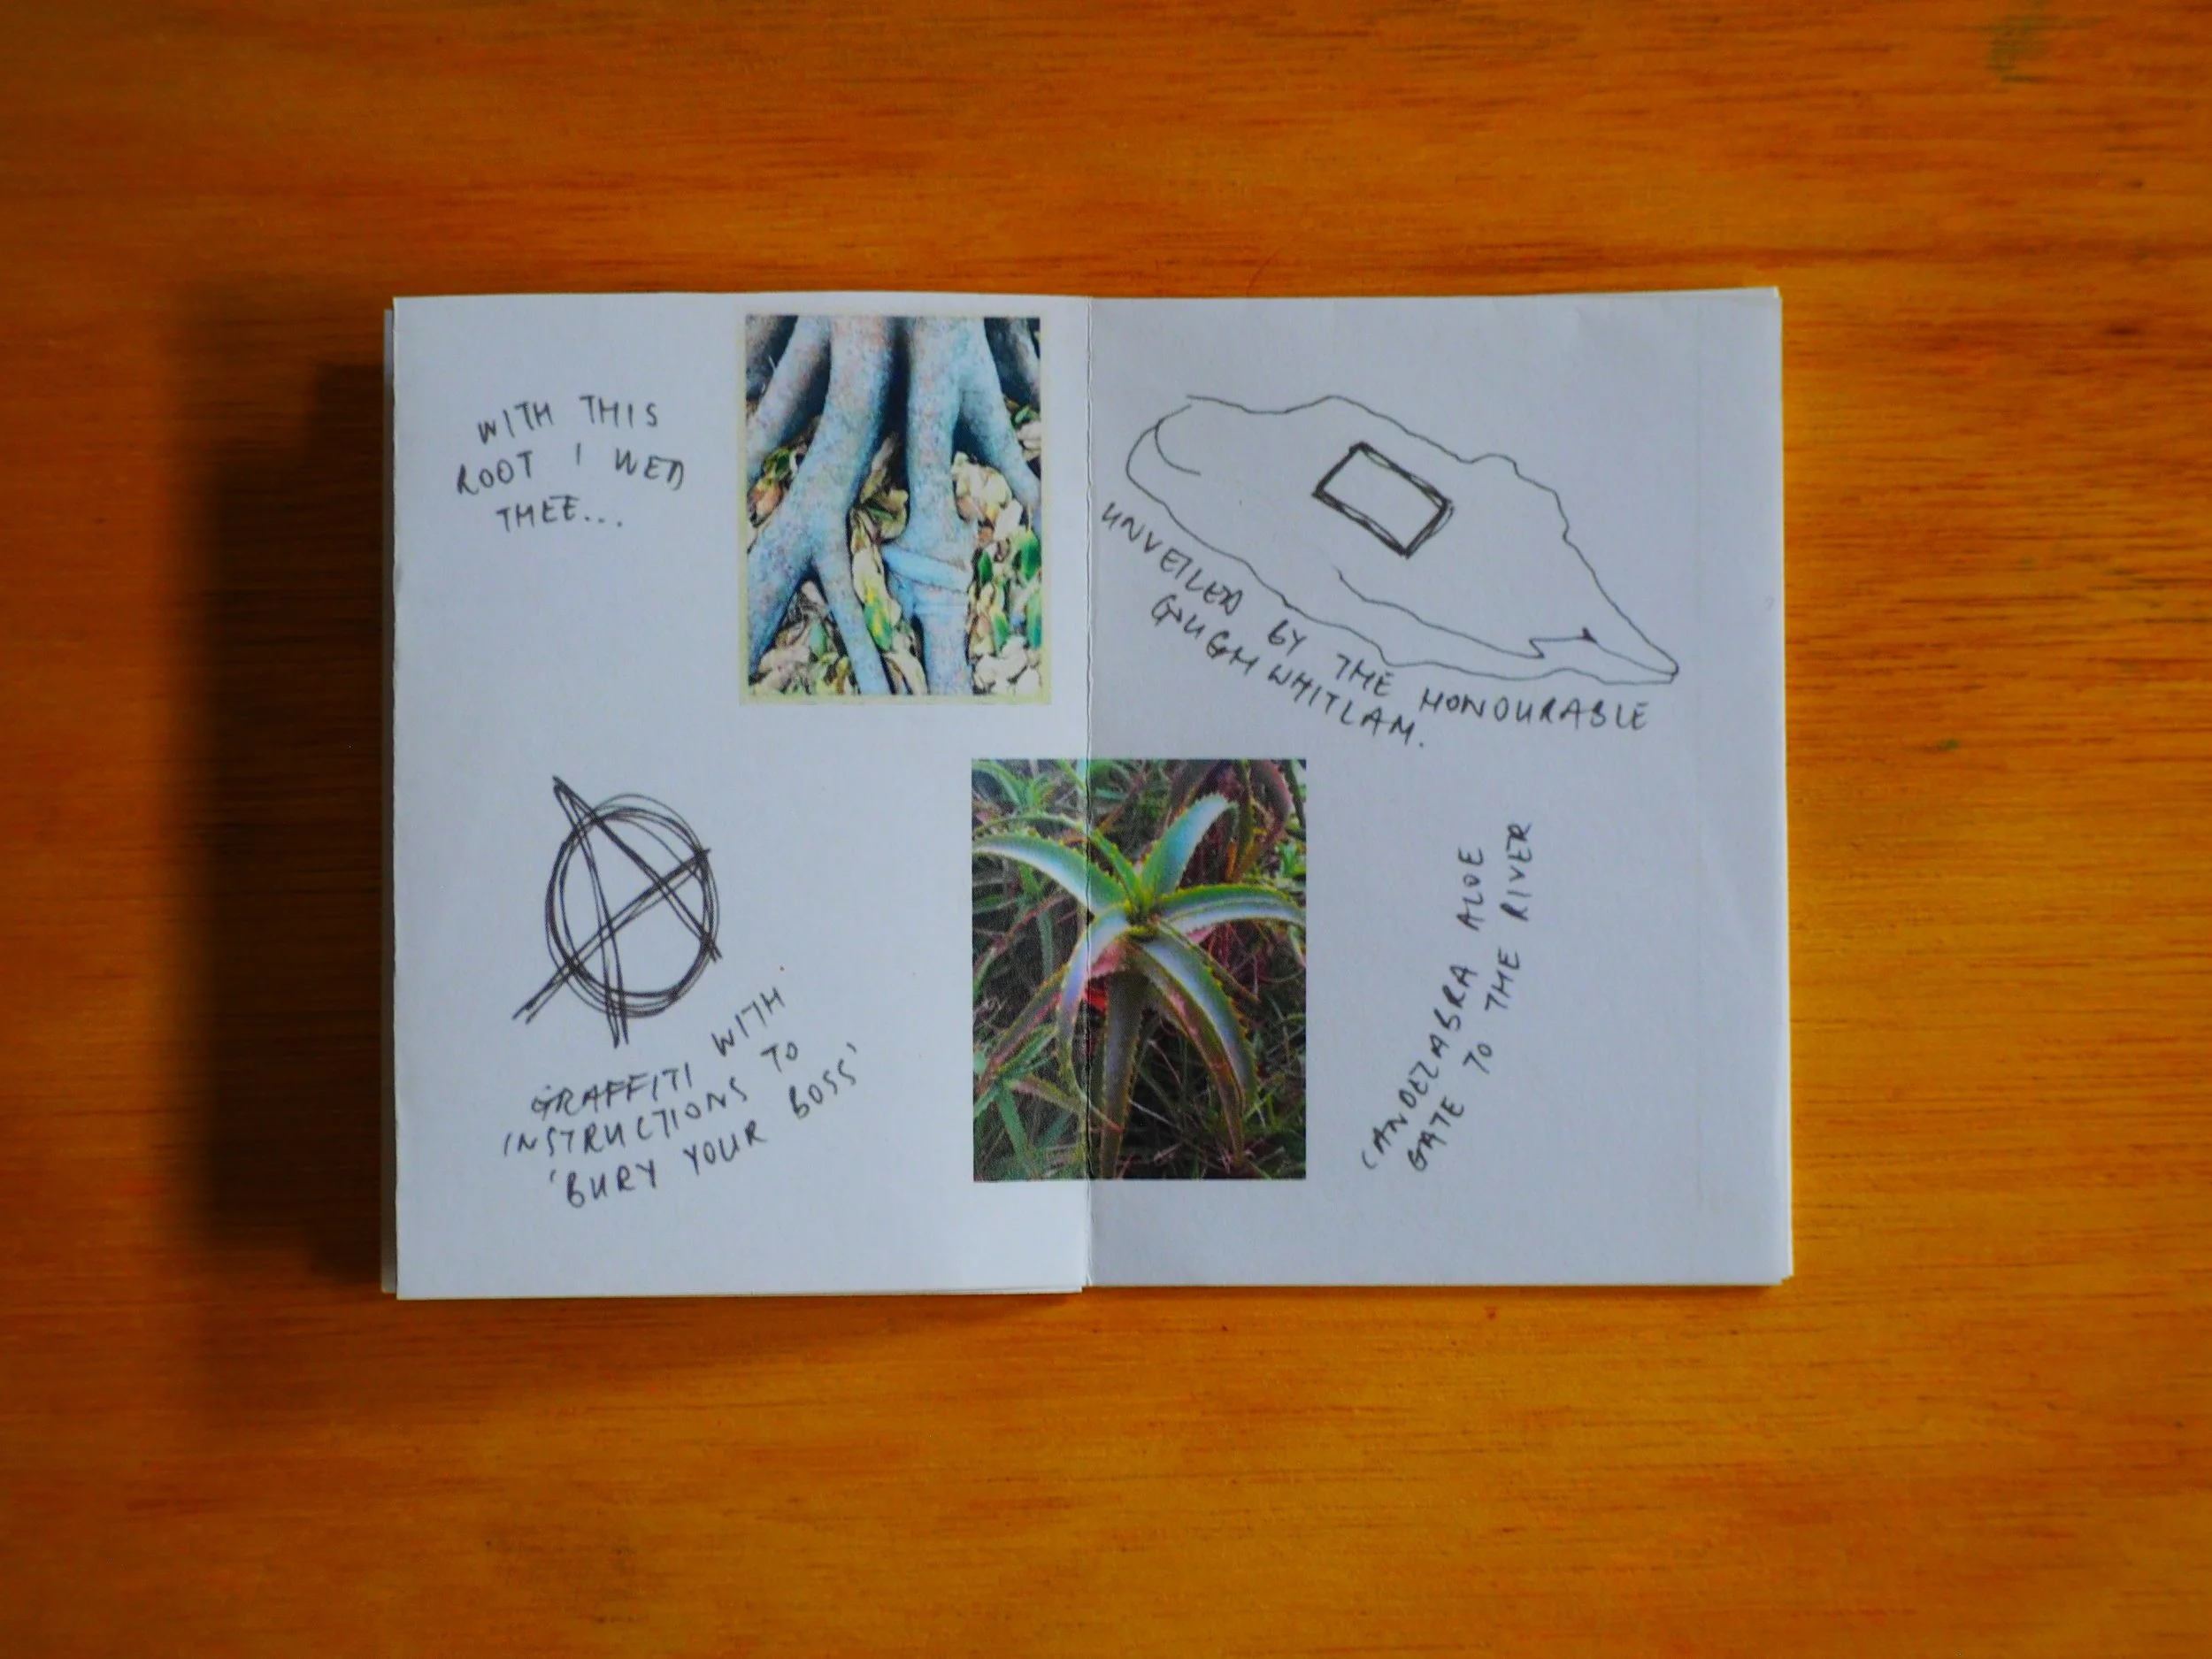 WITH THIS
ROOT I WED
THEE...
GRAFFITI WITH
INSTRUCTIONS TO
'BURY YOUR BOSS'
UNVEILED BY THE HONOURABLE
GOUGH WHITLAM.
CANDELABRA ALOE
GATE TO THE RIVER